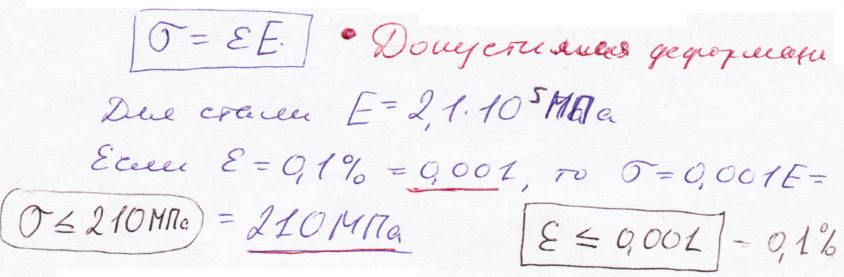 σ = εE. • Допустимая деформаци
Для стали E = 2,1·10⁵ МПа
Если ε = 0,1% = 0,001, то σ = 0,001E =
σ ≤ 210 МПа = 210 МПа ε ≤ 0,001 – 0,1%